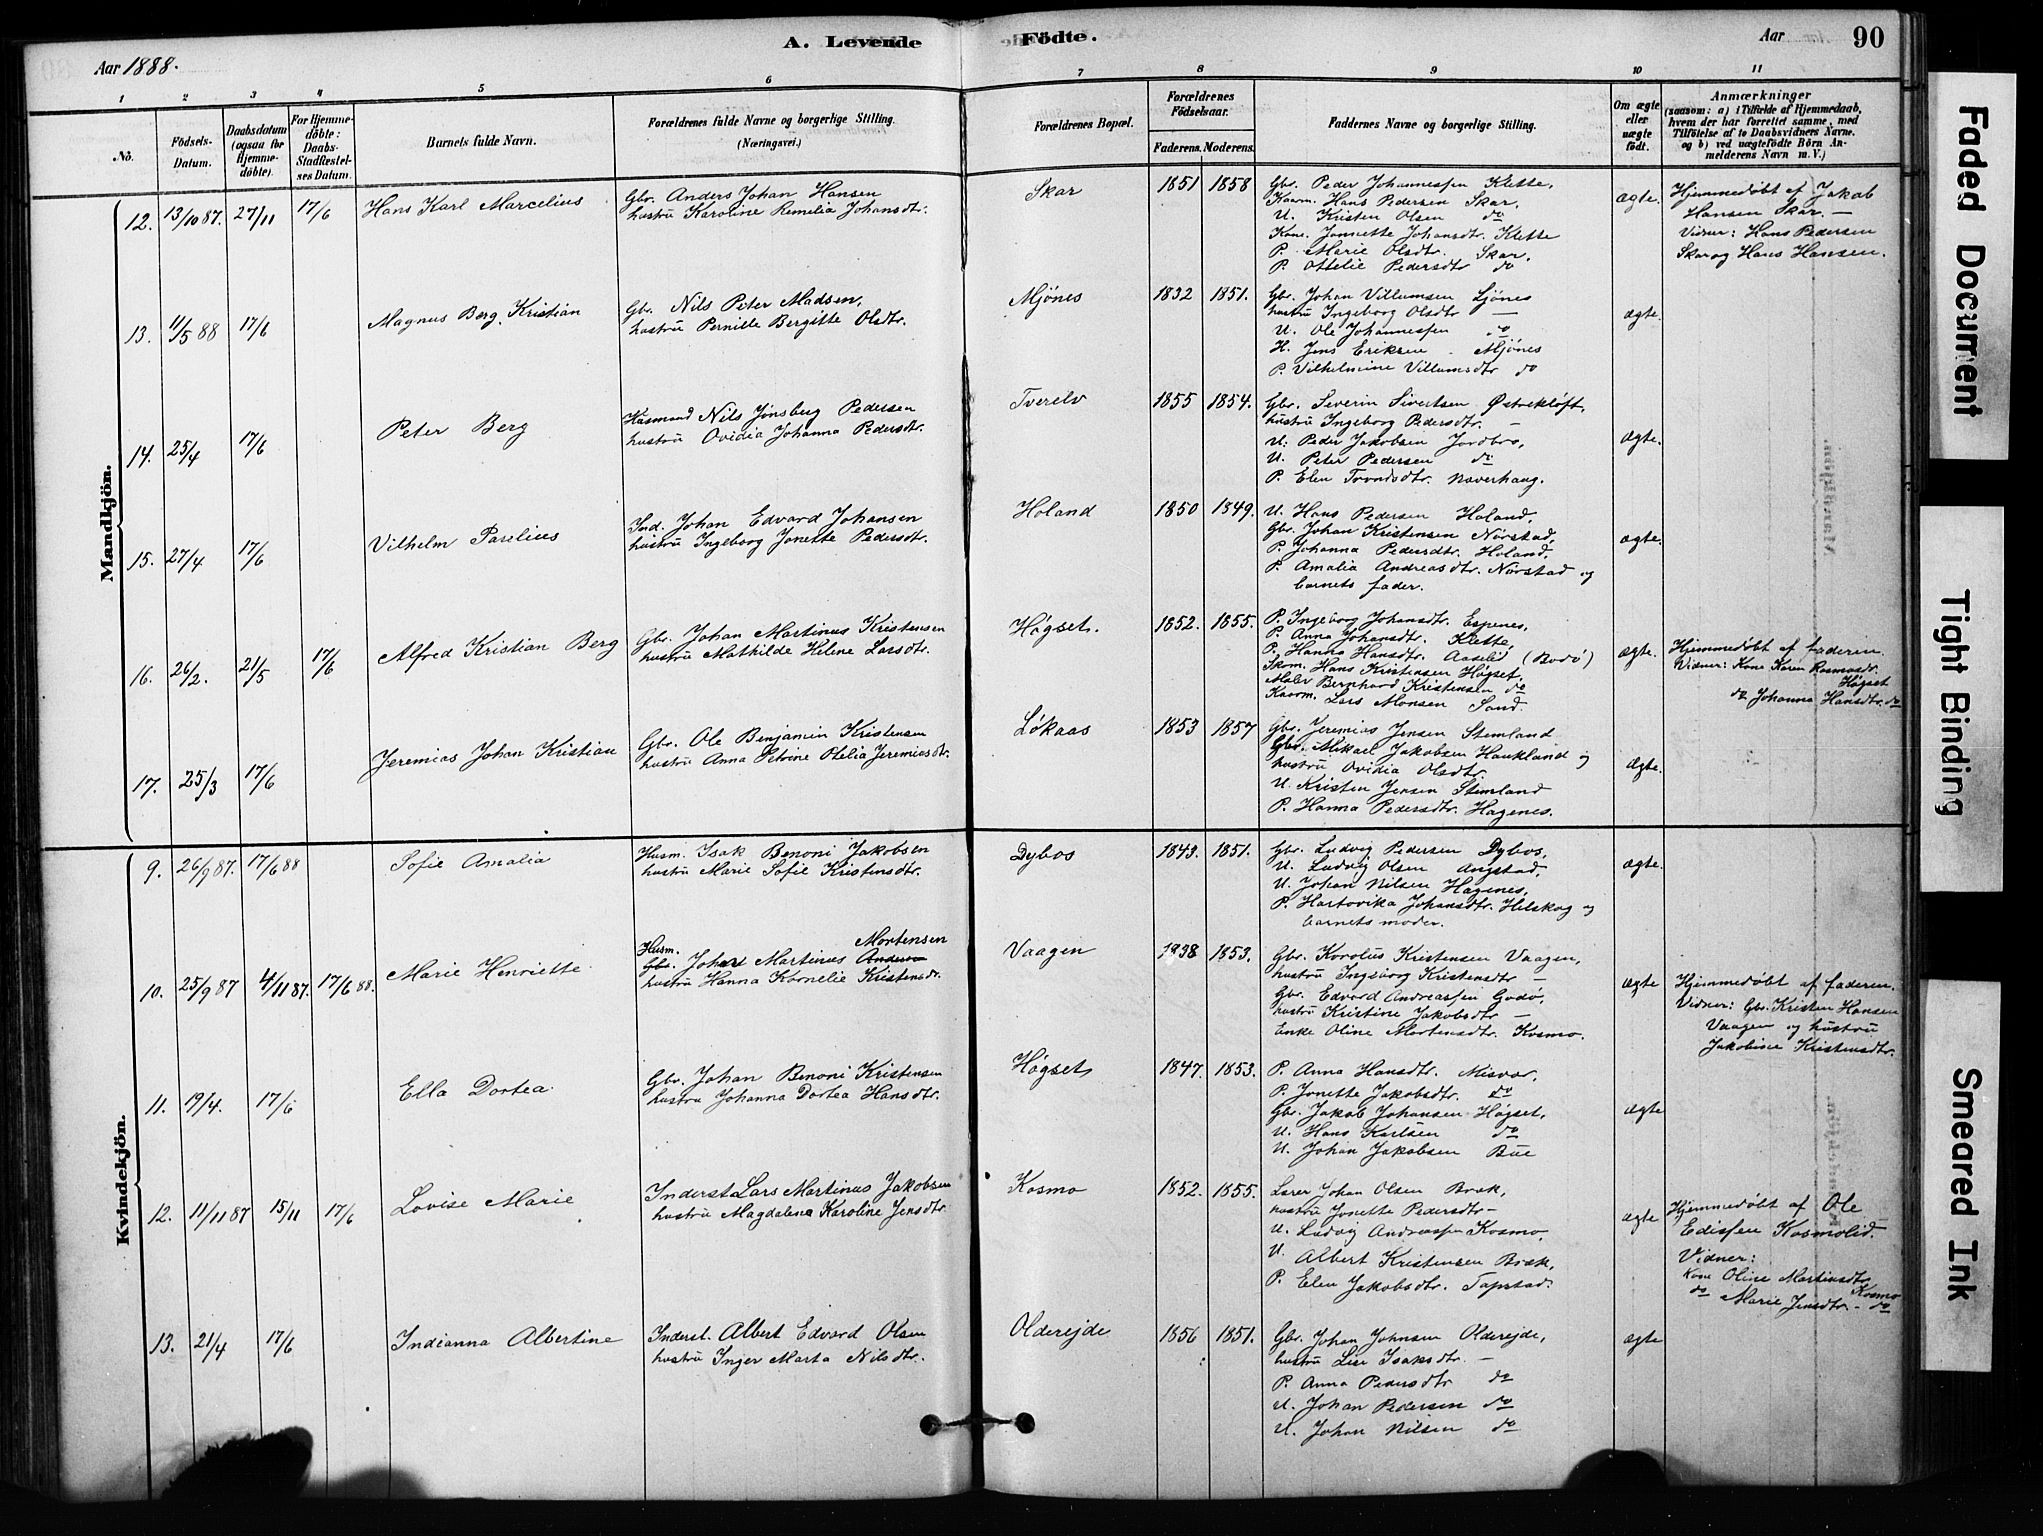 A. Levende Födte.
Aar 90
Aar 1888.
1 2 3 4 5 6 7 8 9 10 11
No.
Födsels-Datum.
Daabsdatum (ogsaa for Hjemmedöbte).
For Hjemmedöbte: Daabs-Stadfæstelses Datum.
Barnets fulde Navn.
Forældrenes fulde Navne og borgerlige Stilling.
(Næringsvei.)
Forældrenes Bopæl.
Forældrenes Födselsaar.
Faderens. Moderens.
Faddernes Navne og borgerlige Stilling.
Om ægte eller uægte födt.
Anmærkninger
(saasom: a) i Tilfælde af Hjemmedaab,
hvem der har forrettet samme, med
Tilföielse af to Daabsvidners Navne.
og b) ved uægtefödte Börn Anmelderens Navn m. V.)
Mandkjön.
12. 13/10 87. 27/11 17/6 Hans Karl Marcelius
Gbr. Anders Johan Hansen
hustru Karoline Remelia Johansdtr.
Skar 1851 1858
Gbr. Peder Johannessen Klette,
Kaarm. Hans Pedersen Skar,
U. Kristen Olsen do
Kone. Jannette Johansdtr. Klette
P. Marie Olsdtr. Skar,
P. Ottelie Pedersdtr do
ægte.
Hjemmedøbt af Jakob
Hansen Skar. —
Vidner: Hans Pedersen
Skar og Hans Hansen.
13. 11/5 88 17/6 Magnus Berg Kristian
Gbr. Nils Peter Madsen,
hustru Pernille Bergitte Olsdtr.
Mjönes 1832 1851.
Gbr. Johan Villumsen Ljönes
hustru Ingeborg Olsdtr —
U. Ole Johannessen do
H. Jens Eriksen Mjönes
P. Vilhelmine Villumsdtr do
ægte.
14. 25/4 17/6 Peter Berg
Husmand Nils Jönsberg Pedersen
hustru Ovidia Johanna Pedersdtr.
Tverelv 1855 1854.
Gbr. Severin Sivertsen Østrekløft,
hustru Ingeborg Pedersdtr. —
U. Peder Jakobsen Jordbro,
U. Peter Pedersen do
P. Elen Trondsdtr. Naverhaug.
ægte.
15. 27/4 17/6 Vilhelm Parelius
Ind. Johan Edvard Johansen
hustru Ingeborg Jonette Pedersdt.
Holand 1850 1849.
U. Hans Pedersen Holand,
Gbr. Johan Kristensen Nørstad,
P. Johanna Pedersdtr. Holand,
P. Amalia Andreasdtr. Nørstad og
barnets fader.
ægte.
16. 26/2. 21/5 17/6 Alfred Kristian Berg
Gbr. Johan Martinus Kristensen
hustru Mathilde Helene Larsdtr.
Høgset. 1852. 1855.
P. Ingeborg Johansdtr. Espenes,
P. Anna Johansdtr. Klette,
P. Hanna Hansdtr. Aaseli (Bodö)
Skom. Hans Kristensen Høgset,
Maler Bernhard Kristensen do
Kaarm. Lars Monsen Sand.
ægte.
Hjemmedøbt af faderen.
Vidner: Kone Karen Rasmusdr.
Høgset
do Johanna Hansdtr. do
17. 25/3 17/6 Jeremias Johan Kristian
Gbr. Ole Benjamin Kristensen
hustru Anna Petrine Otelia Jeremiasdtr.
Løkaas 1853 1857
Gbr. Jeremias Jensen Stemland
Gbr. Mikael Jakobsen Haukland og
hustru Ovidia Olsdtr.
U. Kristen Jensen Stemland
P. Hanna Pedersdtr. Hagenes.
Ægte.
Kvindekjön.
9. 26/9 87. 17/6 88 Sofie Amalia
Husm. Isak Benoni Jakobsen
hustru Marie Sofie Kristensdtr.
Dybos 1843. 1851.
Gbr. Ludvig Pedersen Dybos,
U. Ludvig Olsen Angstad,
U. Johan Nilsen Hagenes,
P. Hartovika Johansdtr. Hilskog og
barnets moder.
ægte.
10. 25/9 87 4/11 87. 17/6 88. Marie Henriette
Husm. Mortensen
Gbr. Johan Martinus Andersen
hustru Hanna Kornelie Kristensdr.
Vaagen 1838 1853.
Gbr. Karolus Kristensen Vaagen,
hustru Ingeborg Kristensdtr —
Gbr. Edvard Andreassen Godö,
hustru Kristine Jakobsdtr —
Enke Oline Mortensdtr. Kosmo.
ægte
Hjemmedøbt af faderen.
Vidner: Gbr. Kristen Hansen
Vaagen og hustru
Jakobine Kristensdtr.
11. 19/4. 17/6 Ella Dortea
Gbr. Johan Benoni Kristensen
hustru Johanna Dortea Hansdtr.
Høgset 1847. 1853.
P. Anna Hansdtr. Misvær,
P. Jonette Jakobsdtr. do
Gbr. Jakob Johansen Høgset,
U. Hans Karlsen do
U. Johan Jakobsen Bue
ægte
12. 11/11 87 15/11 17/6 Lovise Marie
Inderst Lars Martinus Jakobsen
hustru Magdalena Karoline Jensdtr.
Kosmo 1852. 1855.
Lærer Johan Olsen Bræk,
hustru Jonette Pedersdtr —
U. Ludvig Andreassen Kosmo,
U. Albert Kristensen Bræk,
P. Elen Jakobsdtr. Tapstad.
ægte
Hjemmedøbt af Ole
Edissen Kosmolid.
Vidner:
Kone Oline Martinsdtr
Kosmo
do Marie Jensdtr. — do
13. 21/4 17/6 Indianna Albertine
Inderst. Albert Edvard Olsen
hustru Inger Marta Nilsdtr.
Olderejde 1856 1851.
Gbr. Johan Johnsen Olderejde,
hustru Lise Isaksdtr. —
P. Anna Pedersdtr do
U. Johan Pedersen do
U. Johan Nilsen do
ægte
Faded Document
Tight Binding
Smeared Ink